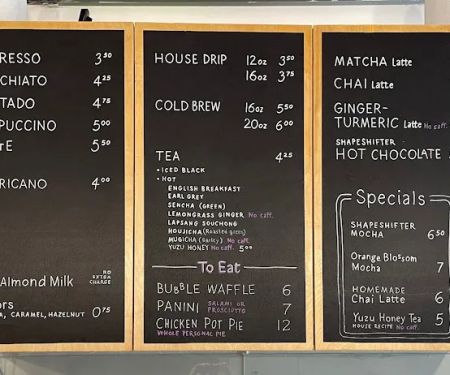 RESSO 3.50
CHIATO 4.25
TADO 4.75
PUCCINO 5.00
TE 5.50
RICANO 4.00
Almond Milk NO EXTRA CHARGE
ors
, CARAMEL, HAZELNUT 0.75
HOUSE DRIP 12oz 3.50
16oz 3.75
COLD BREW 16oz 5.50
20oz 6.00
TEA 4.25
• ICED BLACK
• HOT
ENGLISH BREAKFAST
EARL GREY
SENCHA (GREEN)
LEMONGRASS GINGER No caff.
LAPSANG SOUCHONG
HOUJICHA (Roasted green)
MUGICHA (Barley) No caff.
YUZU HONEY No caff. 5.00
To Eat
BUBBLE WAFFLE 6
PANINI SALAMI OR PROSCIUTTO 7
CHICKEN POT PIE 12
WHOLE PERSONAL PIE
MATCHA Latte
CHAI Latte
GINGER-
TURMERIC Latte No caff.
SHAPESHIFTER
HOT CHOCOLATE
Specials
SHAPESHIFTER
MOCHA 6.50
Orange Blossom
Mocha 7
HOMEMADE
Chai Latte 6
Yuzu Honey Tea 5
HOUSE RECIPE No caff.